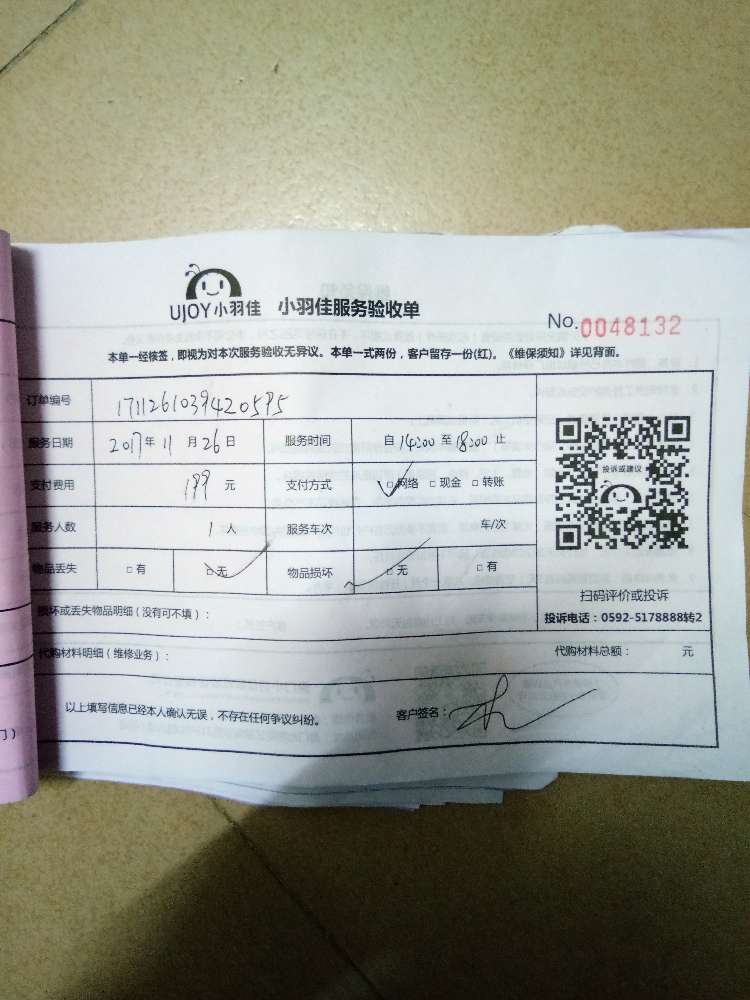 UJOY小羽佳 小羽佳服务验收单
No.0048132
本单一经核签，即视为对本次服务验收无异议。本单一式两份，客户留存一份(红)。《维保须知》详见背面。
订单编号 1711261039420595
服务日期 2017年 11月 26日 服务时间 自 14:00 至 18:00 止
支付费用 199 元 支付方式 □网络 □现金 □转账
服务人数 1人 服务车次 车/次
物品丢失 □有 □无 物品损坏 □无 □有
投诉或建议
扫码评价或投诉
投诉电话：0592-5178888转2
损坏或丢失物品明细（没有可不填）：
代购材料明细（维修业务）： 代购材料总额： 元
以上填写信息已经本人确认无误，不存在任何争议纠纷。 客户签名：